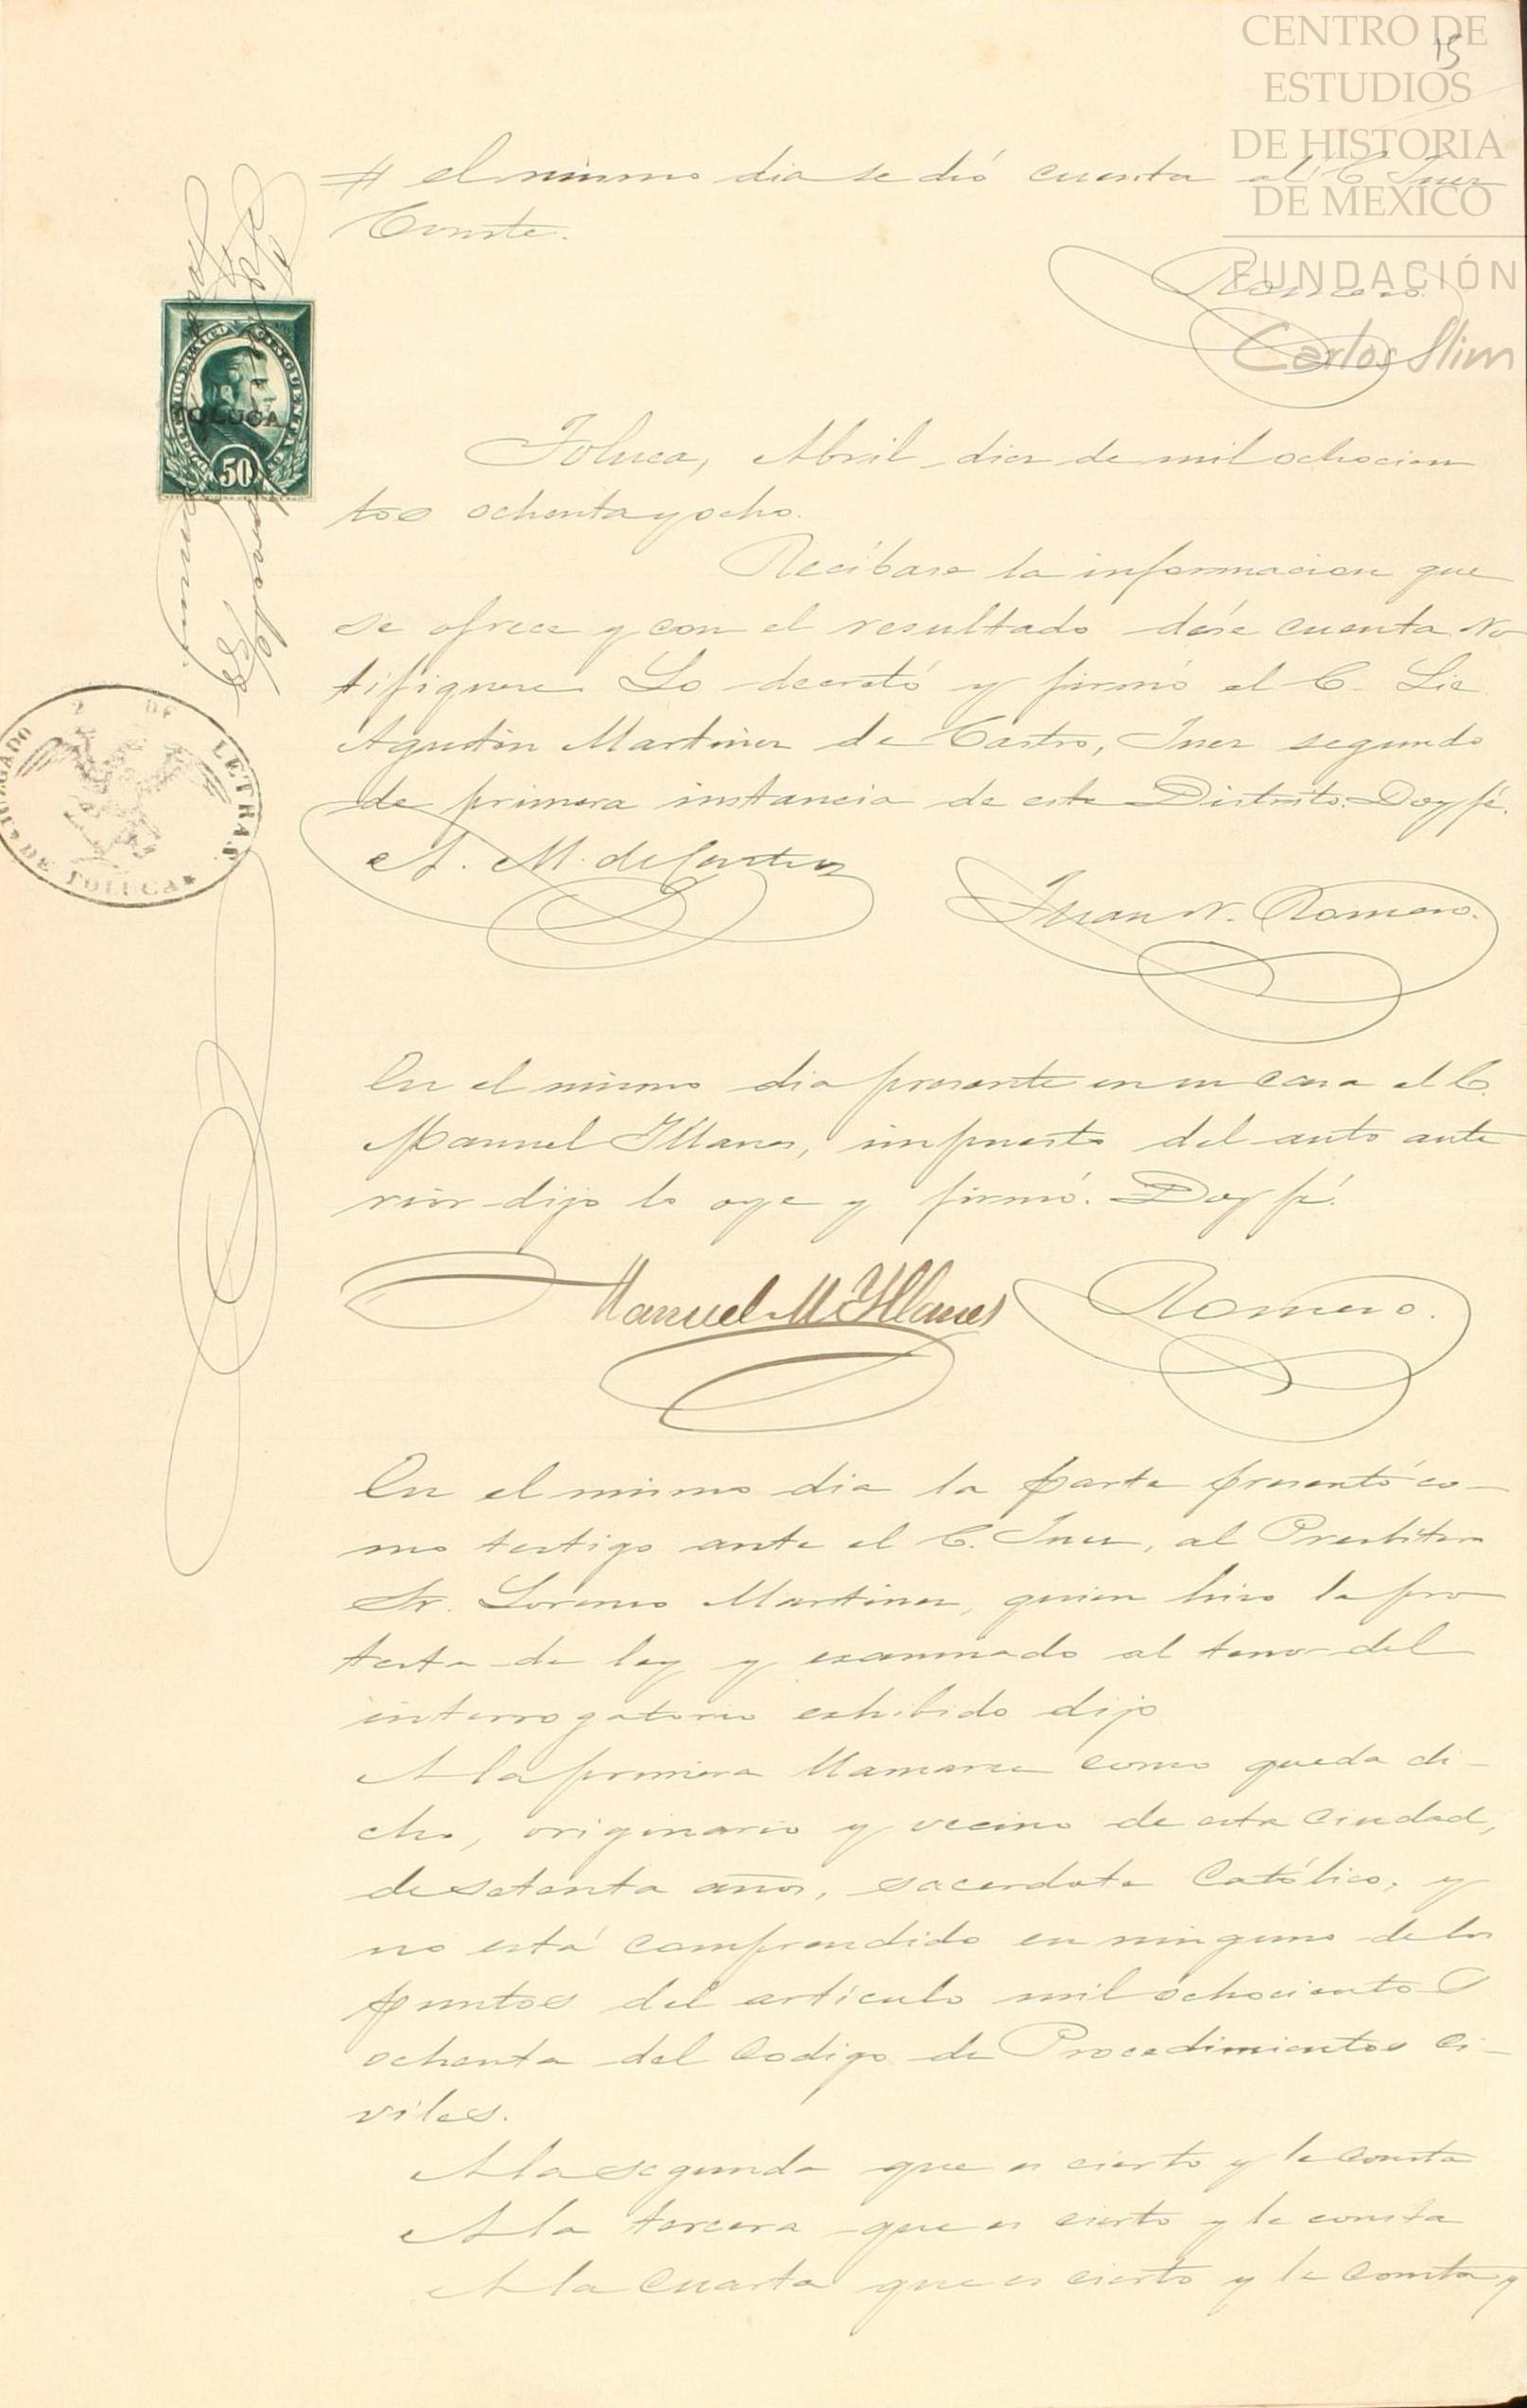 15
CENTRO DE
ESTUDIOS
DE HISTORIA
DE MEXICO
FUNDACIÓN
Carlos Slim
el mismo dia se dió cuenta al C. Juez
Conste.
Romero.
TOLUCA
50
Toluca, Abril diez de mil ochocien
tos ochenta y ocho.
Recíbase la informacion que
se ofrece y con el resultado dése cuenta. No
tifiquese. Lo decretó y firmó el C. Lic.
Agustin Martinez de Castro, Juez segundo
de primera instancia de este Distrito. Doy fé.
A. M. de Castro
Juan N. Romero.
JUZGADO 2 DE LETRAS
DE TOLUCA
En el mismo dia presente en su casa el C.
Manuel Yllanes, impuesto del auto ante
rior dijo lo oye y firmó. Doy fé.
Manuel M Yllanes
Romero.
En el mismo dia la parte presentó co-
mo testigo ante el C. Juez, al Presbítero
Sr. Lorenzo Martinez, quien hizo la pro
testa de ley y examinado al tenor del
interrogatorio exhibido dijo
A la primera llamarse como queda di-
cho, originario y vecino de esta Ciudad,
de setenta años, sacerdote Católico, y
no está comprendido en ninguno de los
puntos del artículo mil ochocientos
ochenta del Codigo de Procedimientos Ci-
viles.
A la segunda que es cierto y le consta
A la tercera que es cierto y le consta
A la cuarta que es cierto y le consta y